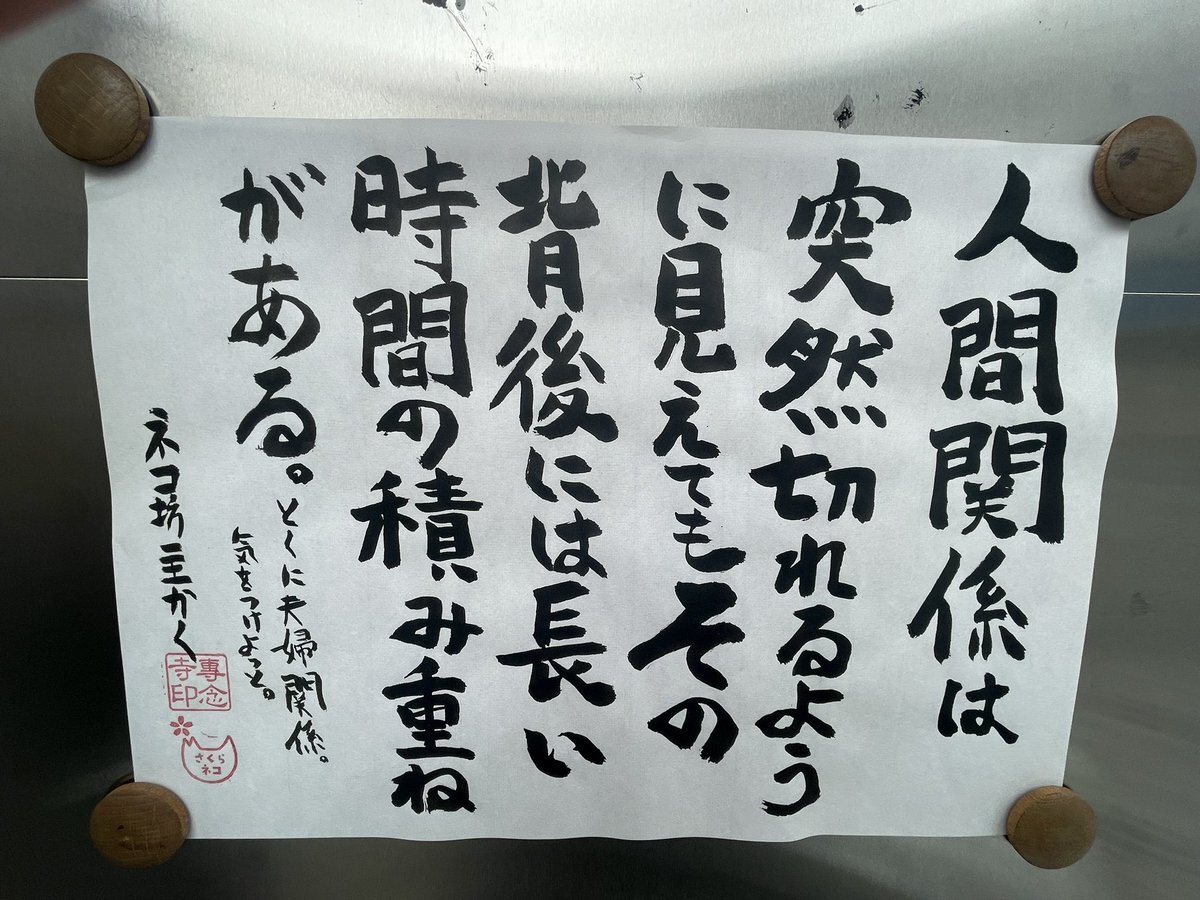 人間関係は
突然切れるよう
に見えてもその
背後には長い
時間の積み重ね
がある。
とくに夫婦関係。
気をつけよっと。
ネコ坊主かく
專念
寺印
さくら
ネコ